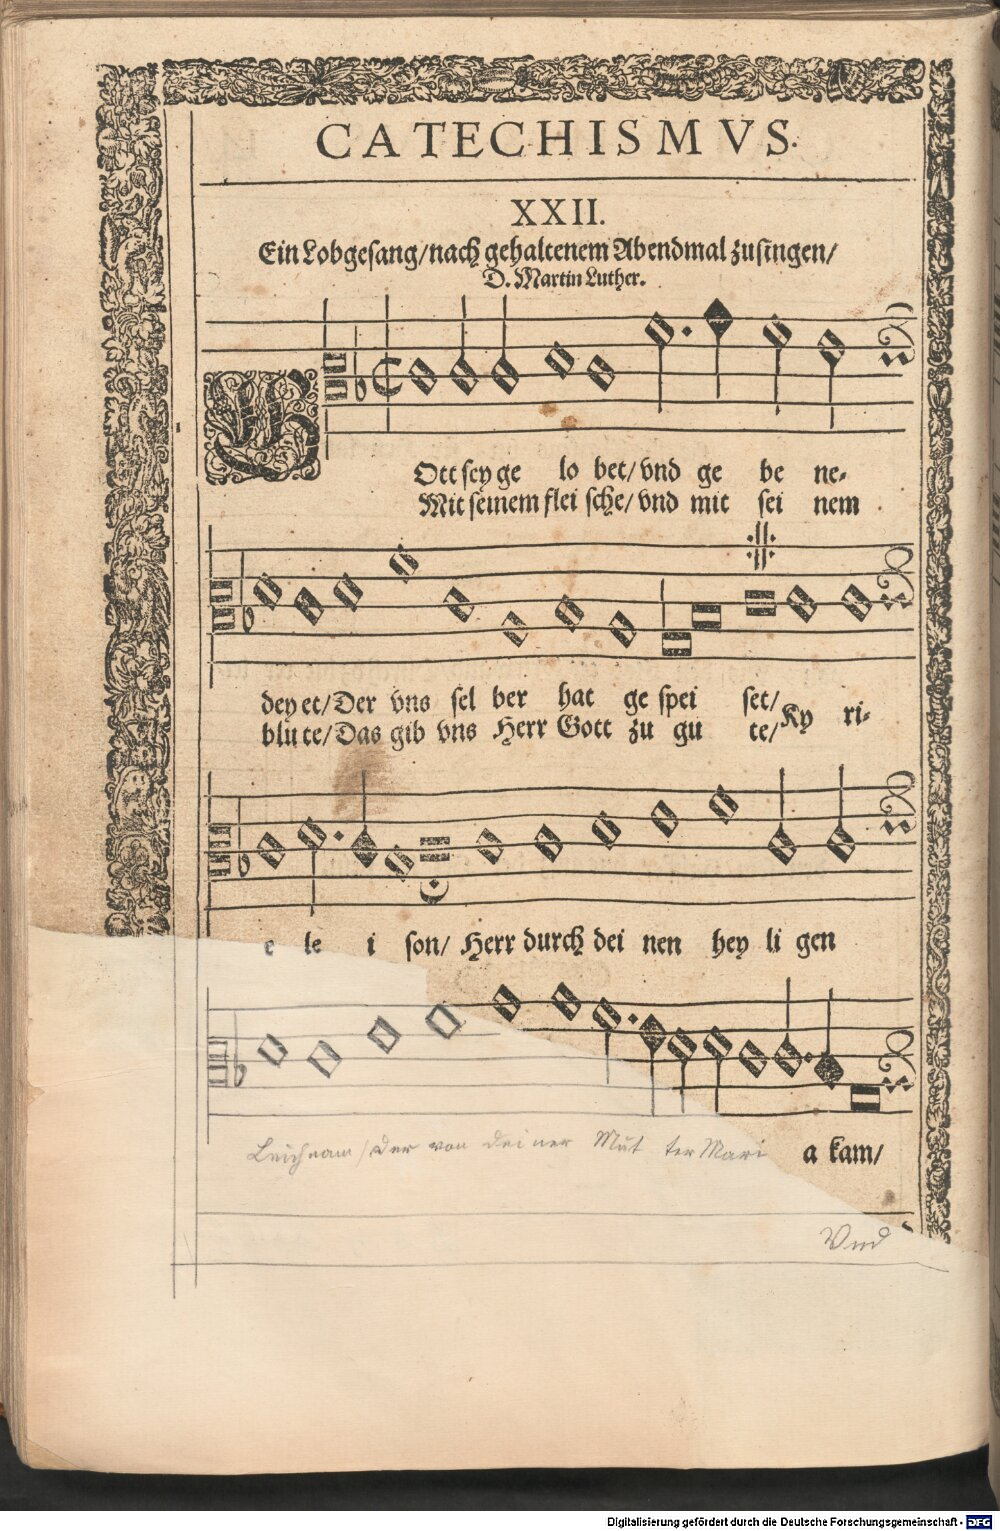 CATECHISMVS.
XXII.
Ein Lobgesang/nach gehaltenem Abendmal zusingen/
D. Martin Luther.
GOtt sey ge lo bet/vnd ge be ne-
Mit seinem flei sche/vnd mit sei nem
dey et/Der vns sel ber hat ge spei set/
blu te/Das gib vns Herr Gott zu gu te/Ky ri-
e le i son/ Herr durch dei nen hey li gen
Leichnam/der von deiner Mut ter Mari a kam/
Vnd
Digitalisierung gefördert durch die Deutsche Forschungsgemeinschaft - DFG